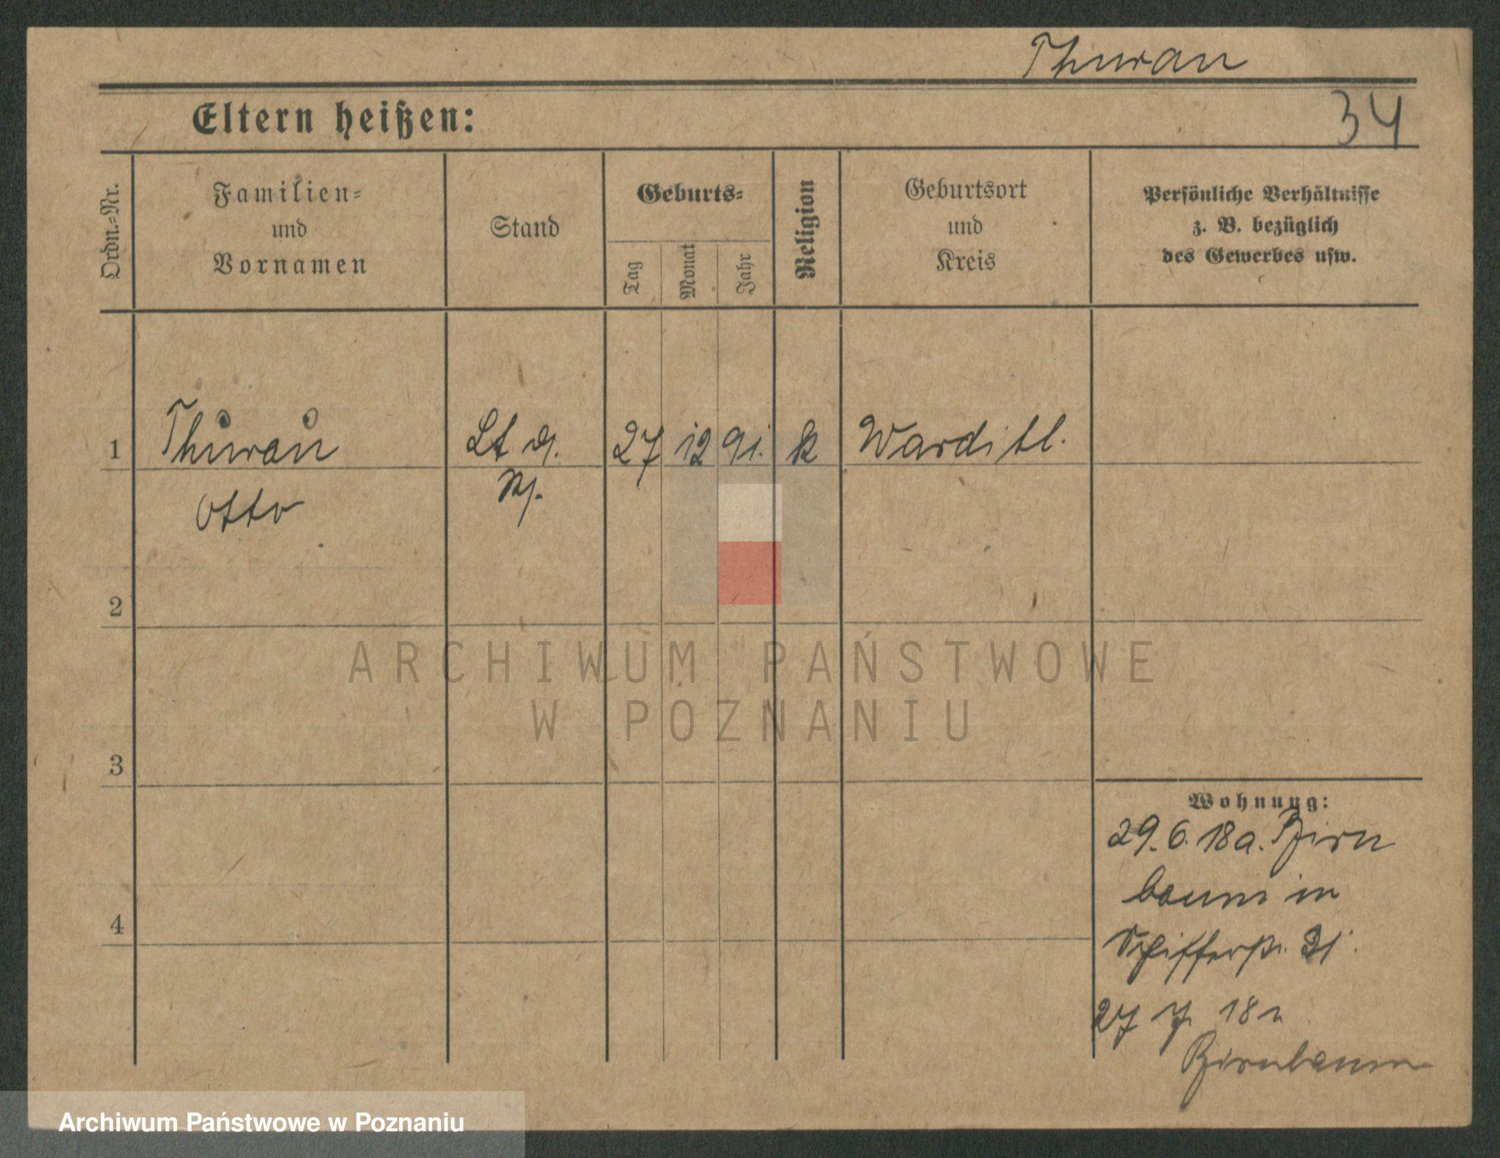 Thurau
34
Eltern heißen:
Ordn.-Nr.
Familien-
und
Vornamen
Stand
Geburts-
Tag
Monat
Jahr
Religion
Geburtsort
und
Kreis
Persönliche Verhältnisse
z. B. bezüglich
des Gewerbes usw.
1
Thurau
Lt d.
27
12
91.
k
Otto
2
3
4
Wohnung:
29.6.18 a. Birn
baum in
Schifferstr. 21.
27 7. 18 n
Birnbaum
ARCHIWUM PAŃSTWOWE
W POZNANIU
Archiwum Państwowe w Poznaniu